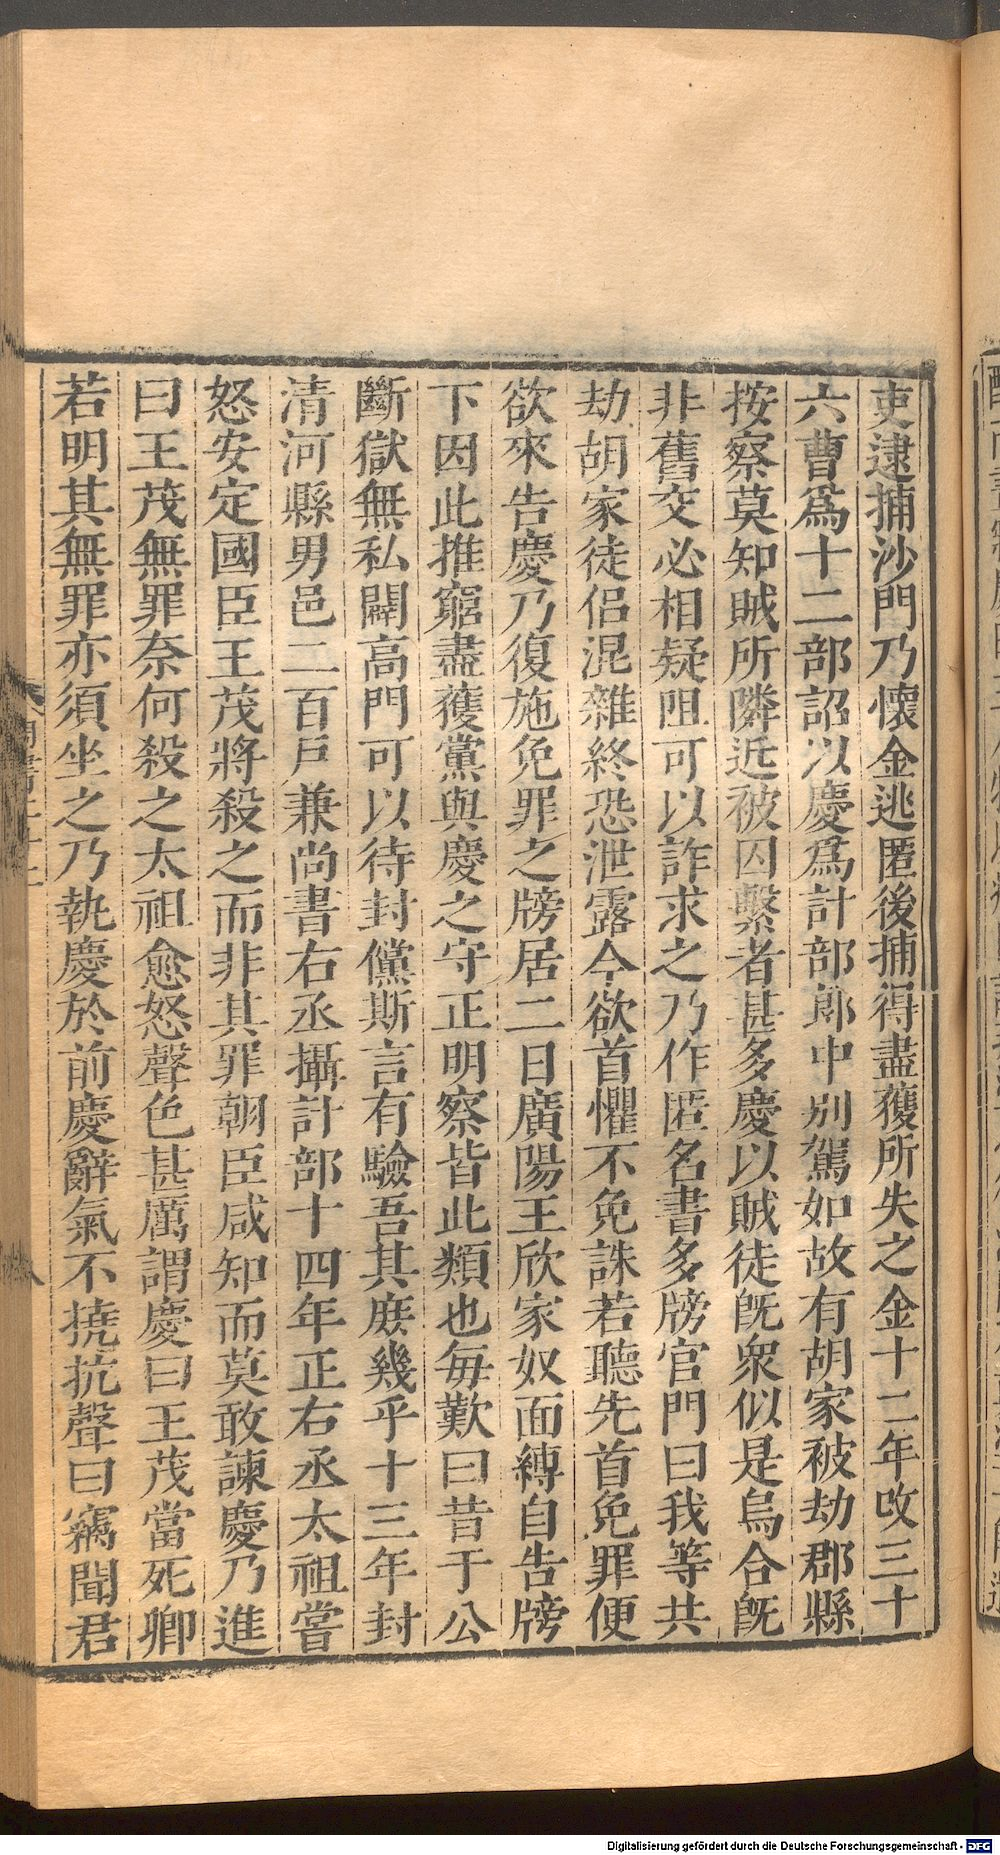 吏逮捕沙門乃懷金逃匿後捕得盡獲所失之金十二年攺三十
六曹爲十二部詔以慶爲計部郎中別駕如故有胡家被劫郡縣
按察莫知賊所隣近被囚繫者甚多慶以賊徒旣衆似是烏合旣
非舊交必相疑阻可以詐求之乃作匿名書多牓官門曰我等共
劫胡家徒侣混雜終恐泄露今欲首懼不免誅若聽先首免罪便
欲來告慶乃復施免罪之牓居二日廣陽王欣家奴面縛自告牓
下因此推窮盡獲黨與慶之守正明察皆此類也每歎曰昔于公
斷獄無私闢高門可以待封儻斯言有驗吾其庶幾乎十三年封
清河縣男邑二百戸兼尚書右丞攝計部十四年正右丞太祖嘗
怒安定國臣王茂將殺之而非其罪朝臣咸知而莫敢諫慶乃進
曰王茂無罪奈何殺之太祖愈怒聲色甚厲謂慶曰王茂當死卿
若明其無罪亦須坐之乃執慶於前慶辭氣不撓抗聲曰竊聞君
Digitalisierung gefördert durch die Deutsche Forschungsgemeinschaft - DFG